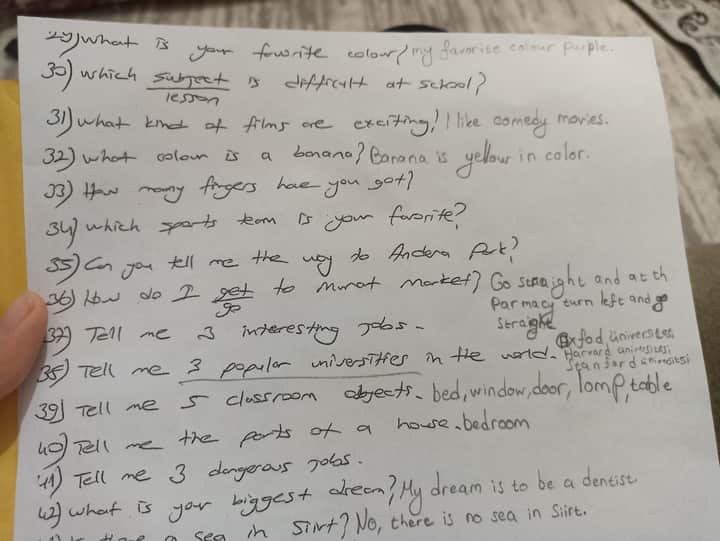 29) What is your favorite colour? my favorite colour purple.
30) which subject is difficult at school?
lesson
31) what kind of films are exciting? I like comedy movies.
32) what colour is a banana? Banana is yellow in color.
33) How many fingers have you got?
34) which sports team is your favorite?
35) Can you tell me the way to Andera Park?
36) How do I get to Murat Market? Go straight and at th
go
Parmacy turn left and go
straight
37) Tell me 3 interesting jobs-
Oxfod üniversitesi
35) Tell me 3 popular universities in the world-
Harvard üniversitesi
Stanford üniversitesi
39) Tell me 5 classroom objects. bed, window, door, lomp, table
40) Tell me the parts of a house. bedroom
41) Tell me 3 dangerous jobs.
42) what is your biggest dream? My dream is to be a dentist.
a sea in Siirt? No, there is no sea in Siirt.